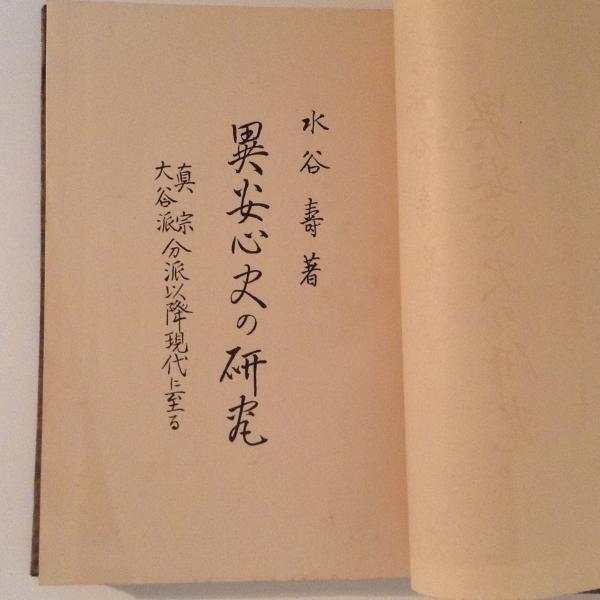 水谷壽著
異安心史の研究
真宗大谷派分派以降現代に至る